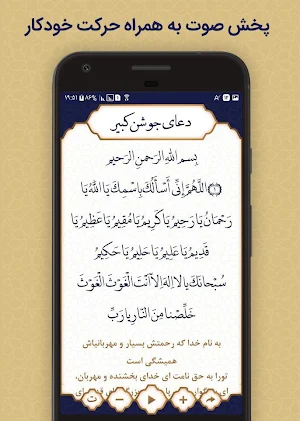 پخش صوت به همراه حرکت خودکار
۱۹:۵۱ ۸۶%
دعای جوشن کبیر
بِسمِ اللهِ الرَّحمنِ الرَّحیمِ
اَللّهُمَّ اِنّی اَسأَلُکَ بِاسمِکَ یا اَللهُ یا
رَحمانُ یا رَحیمُ یا کَریمُ یا مُقیمُ یا عَظیمُ یا
قَدیمُ یا عَلیمُ یا حَلیمُ یا حَکیمُ
سُبحانَکَ یا لا اِلهَ اِلّا اَنتَ الغَوثَ الغَوثَ
خَلِّصنا مِنَ النّارِ یا رَبِّ
به نام خدا که رحمتش بسیار و مهربانی‌اش
همیشگی است
تورا به حق نامت ای خدای بخشنده و مهربان،
ت